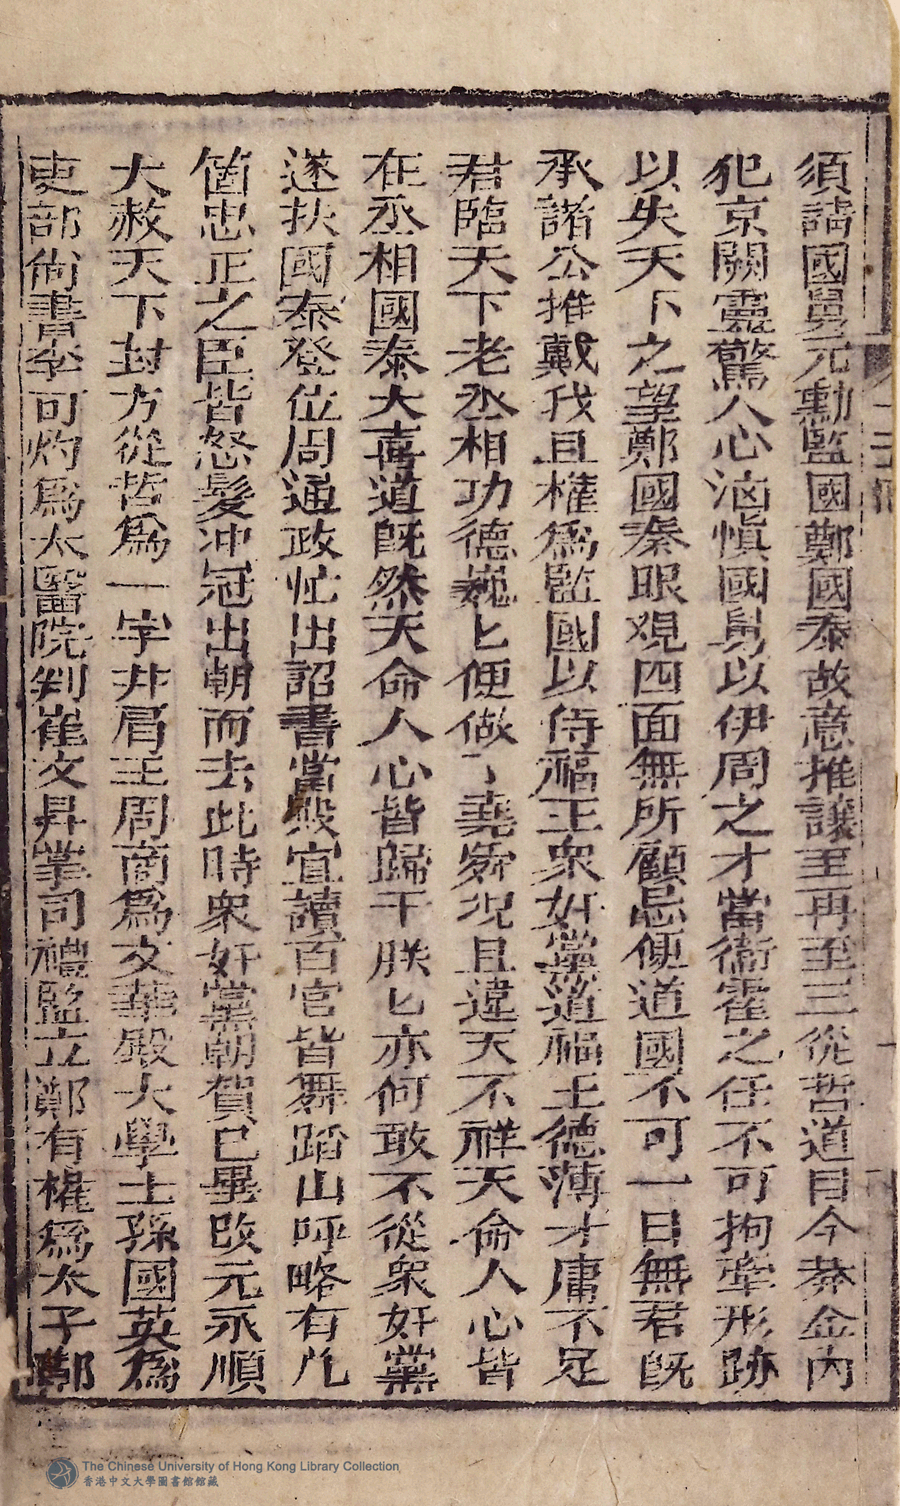 須請國舅元勳監國鄭國泰故意推讓至再至三從哲道目今莽金內
犯京闕震驚人心洶懼國舅以伊周之才當衛霍之任不可拘牽形跡
以失天下之望鄭國泰眼覌四面無所顧忌便道國不可一日無君旣
承諸公推戴我且權爲監國以待福王衆奸黨道福王德薄才庸不足
君臨天下老丞相功德巍匕便做了堯舜况且違天不祥天命人心皆
在丞相國泰大喜道旣然天命人心皆歸于朕匕亦何敢不從衆奸黨
遂扶國泰登位周通政忙出詔書當殿宣讀百官皆舞蹈山呼略有几
箇忠正之臣皆怒髮冲冠出朝而去此時衆奸黨朝賀已畢改元永順
大赦天下封方從哲爲一字并肩王周商爲文華殿大學士孫國英爲
吏部尙書李可灼爲太醫院判崔文昇掌司禮監立鄭有權爲太子鄭
The Chinese University of Hong Kong Library Collection
香港中文大學圖書館館藏